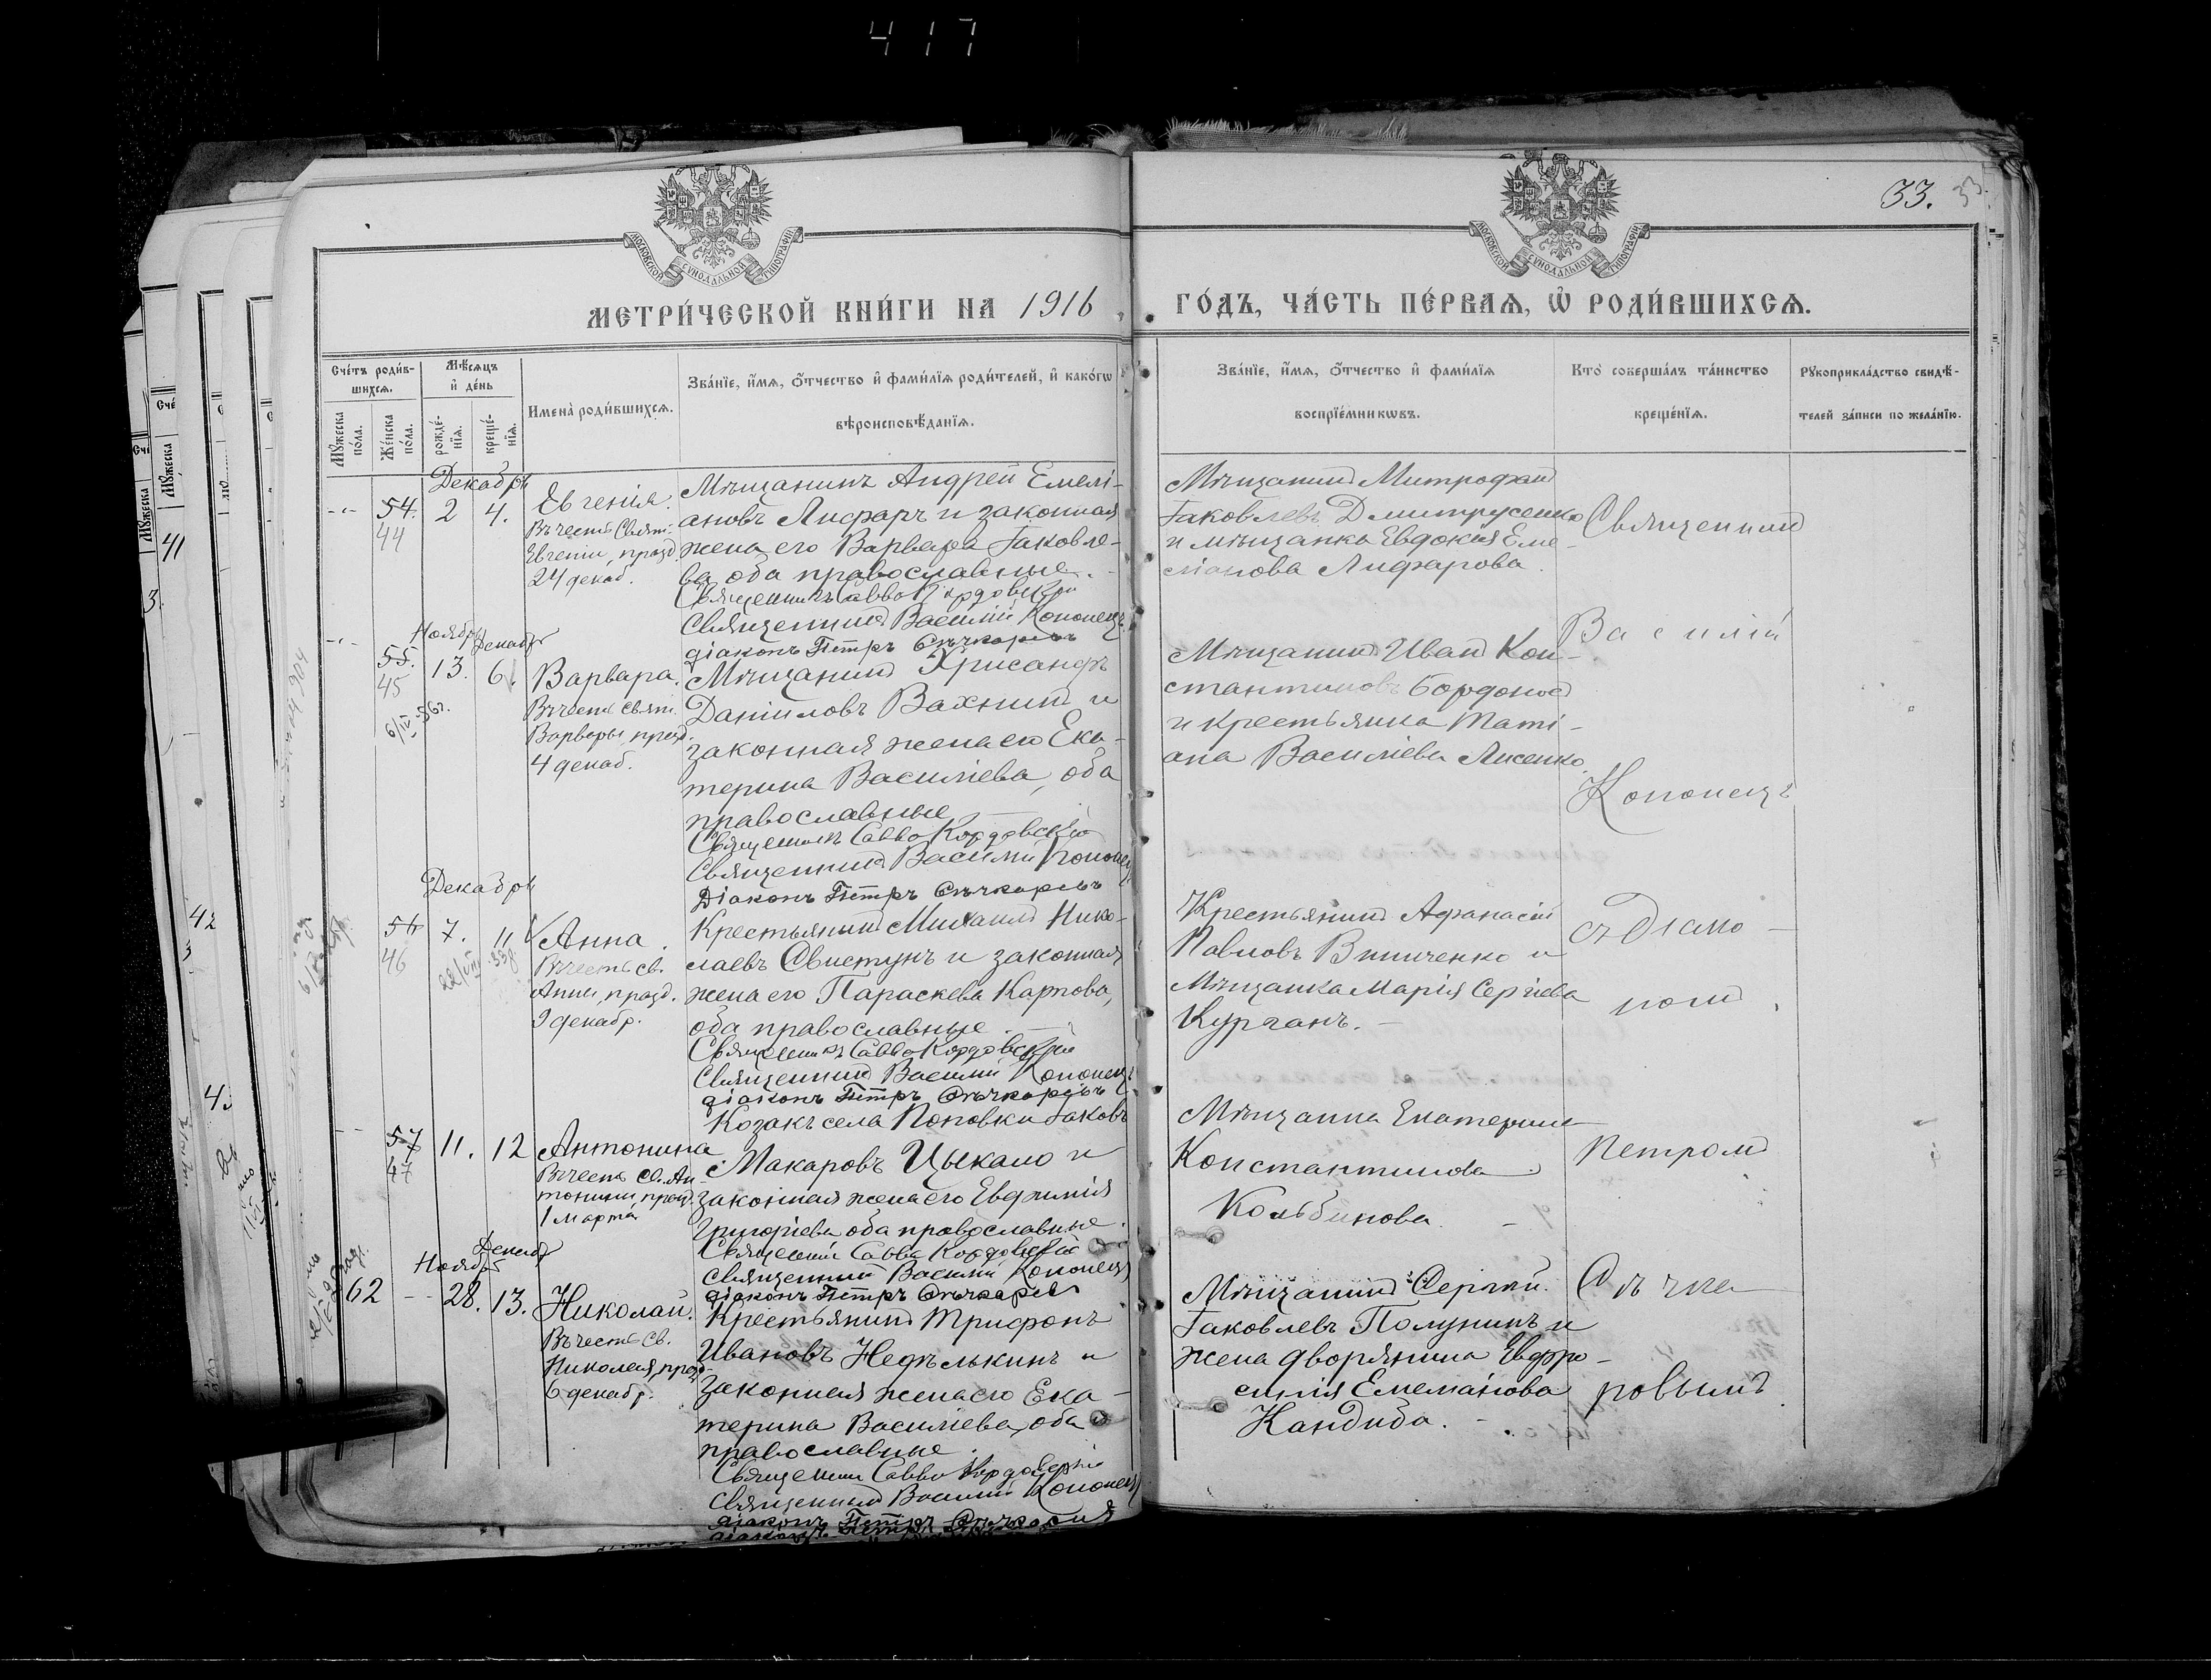 417
33.
33.
МОСКОВСКОЙ СѴНОДАЛЬНОЙ ТИПОГРАФІИ
МОСКОВСКОЙ СѴНОДАЛЬНОЙ ТИПОГРАФІИ
МЕТРИ́ЧЕСКОЙ КНИ́ГИ НА 1916 ГО́ДЪ, ЧА́СТЬ ПЕ́РВАѦ, Ѡ҆ РОДИ́ВШИХСѦ.
Сче́тъ роди́в-
шихсѧ.
Мꙋ́жеска по́ла.
Же́нска по́ла.
Мѣ́сѧцъ и҆ де́нь
рожде́-нїѧ.
креще́-нїѧ.
Имена̀ роди́вшихсѧ.
Зва́нїе, и҆́мѧ, ѻ҆́тчество и҆ фами́лїѧ роди́телей, и҆ како́гѡ
вѣроисповѣ́данїѧ.
Зва́нїе, и҆́мѧ, ѻ҆́тчество и҆ фами́лїѧ
воспрїе́мникѡвъ.
Кто̀ соверша́лъ та́инство
креще́нїѧ.
Рꙋкоприкла́дство свидѣ́-
телей за́писи по жела́нїю.
Декабрь
54.
44
2
4.
Евгенія.
Въ честь Свят.
Евгеніи, празд.
24 декаб.
Мѣщанинъ Андрей Емелі-
ановъ Лифарь и законная
жена его Варвара Іаковле-
ва оба православные.
Священникъ Савва Кордовскій
Священникъ Василій Кононецъ
діаконъ Петръ Сѣчкаревъ
Мѣщанинъ Митрофан
Іаковлевъ Дмитрусенко
и мѣщанка Евдокія Еме-
ліанова Лифарова.
Ноябрь
Декабр
55.
45
13.
6.
Варвара.
Въ честь Свят.
Варвары, празд.
4 декаб.
Мѣщанинъ Хрисанфъ
Даніиловъ Вахнинъ и
законная жена его Ека-
терина Василіева, оба
православные
Священникъ Савва Кордовскій
Священникъ Василій Кононецъ
Діаконъ Петръ Сѣчкаревъ
Мѣщанинъ Иванъ Кон-
стантиновъ Бордонос
и крестьянка Таті-
ана Василіева Лисенко.
Декабрь
56
46
7.
11
Анна.
Въ честь св.
Анны, празд.
9 декабр.
Крестьянинъ Михаилъ Нико-
лаевъ Свистунъ и законная
жена его Параскева Карпова,
оба православные.
Священникъ Савва Кордовскій
Священникъ Василій Кононецъ
діаконъ Петръ Сѣчкаревъ
Крестьянинъ Афанасій
Павловъ Винниченко и
Мѣщанка Марія Сергіева
Курганъ.
57
47
11.
12
Антонина
Въ честь св. Ан-
тонины, празд.
1 марта
Козакъ села Поповки Іаковъ
Макаровъ Цыкало и
законная жена его Евфимія
Григоріева оба православные.
Священникъ Савва Кордовскій
Священникъ Василій Кононецъ
діаконъ Петръ Сѣчкаревъ
Мѣщанка Екатерина
Константинова
Колбинова.
Ноябр
Декаб
62
28.
13.
Николай.
Въ честь св.
Николая, празд.
6 декабр.
Крестьянинъ Трифонъ
Ивановъ Недѣлькинъ и
законная жена его Ека-
терина Василіева, оба
православные.
Священникъ Савва Кордовскій
Священникъ Василій Кононецъ
діаконъ Петръ Сѣчкаревъ
Мѣщанинъ Сергѣй
Іаковлевъ Полунинъ и
жена дворянина Евфро-
синія Емеліанова
Кандиба.
Священникъ
Василій
Кононецъ
съ Діако-
номъ
Петромъ
Сѣчка
ровымъ